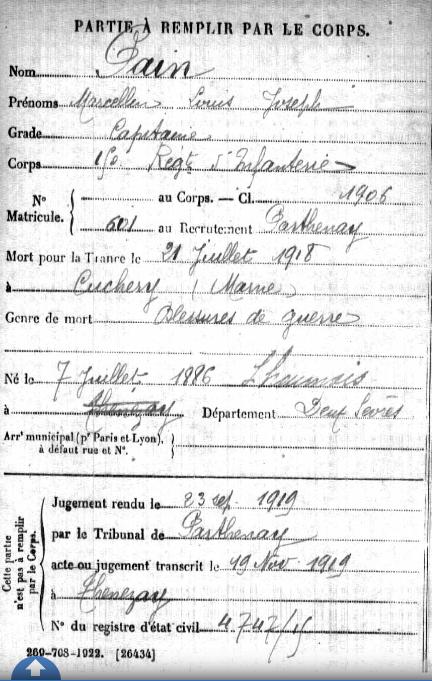 PARTIE À REMPLIR PAR LE CORPS.
Nom Pain
Prénoms Marcellin Louis Joseph
Grade Capitaine
Corps Régt d'Infanterie
N° Matricule. { au Corps. — Cl. 1906
601 au Recrutement Parthenay
Mort pour la France le 21 Juillet 1918
à Cuchery (Marne)
Genre de mort Blessures de guerre
Né le 7 Juillet 1886 Lhoumois
à Thénezay Département Deux Sèvres
Arrt municipal (pr Paris et Lyon), à défaut rue et N°. }
Cette partie n'est pas à remplir par le Corps.
Jugement rendu le 23 sep. 1919
par le Tribunal de Parthenay
acte ou jugement transcrit le 19 Nov. 1919
à Thenezay
N° du registre d'état civil 4747/
269-708-1922. [26434]